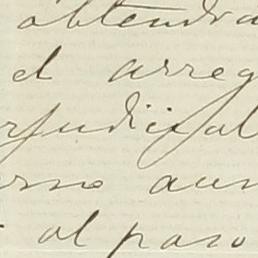 obtendra
el arreg
rjudicial
erno aun
al paso